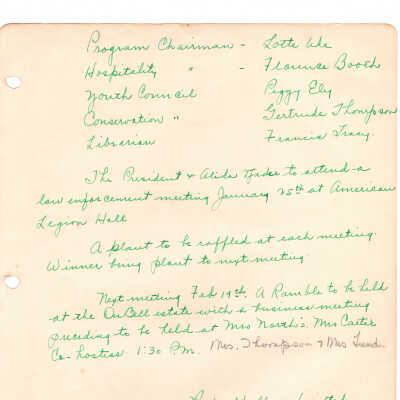 Program Chairman - Lotte Ude
Hospitality " - Florence Booth
Youth Council Peggy Ely
Conservation " Gertrude Thompson
Librarian Francis Tracy.
The President & Alida to attend a
law enforcement meeting January 25th at American
Legion Hall
A plant to be raffled at each meeting.
Winner bring plant to next meeting.
Next meeting Feb 19th. A Ramble to be held
at the estate with a business meeting
preceding to be held at Mrs North's. Mrs Carter
Co-hostess 1:30 P.M. Mrs. Thompson & Mrs